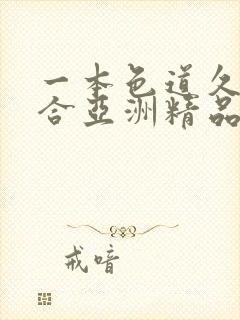 一本色道久
合亚洲精品
戒喑